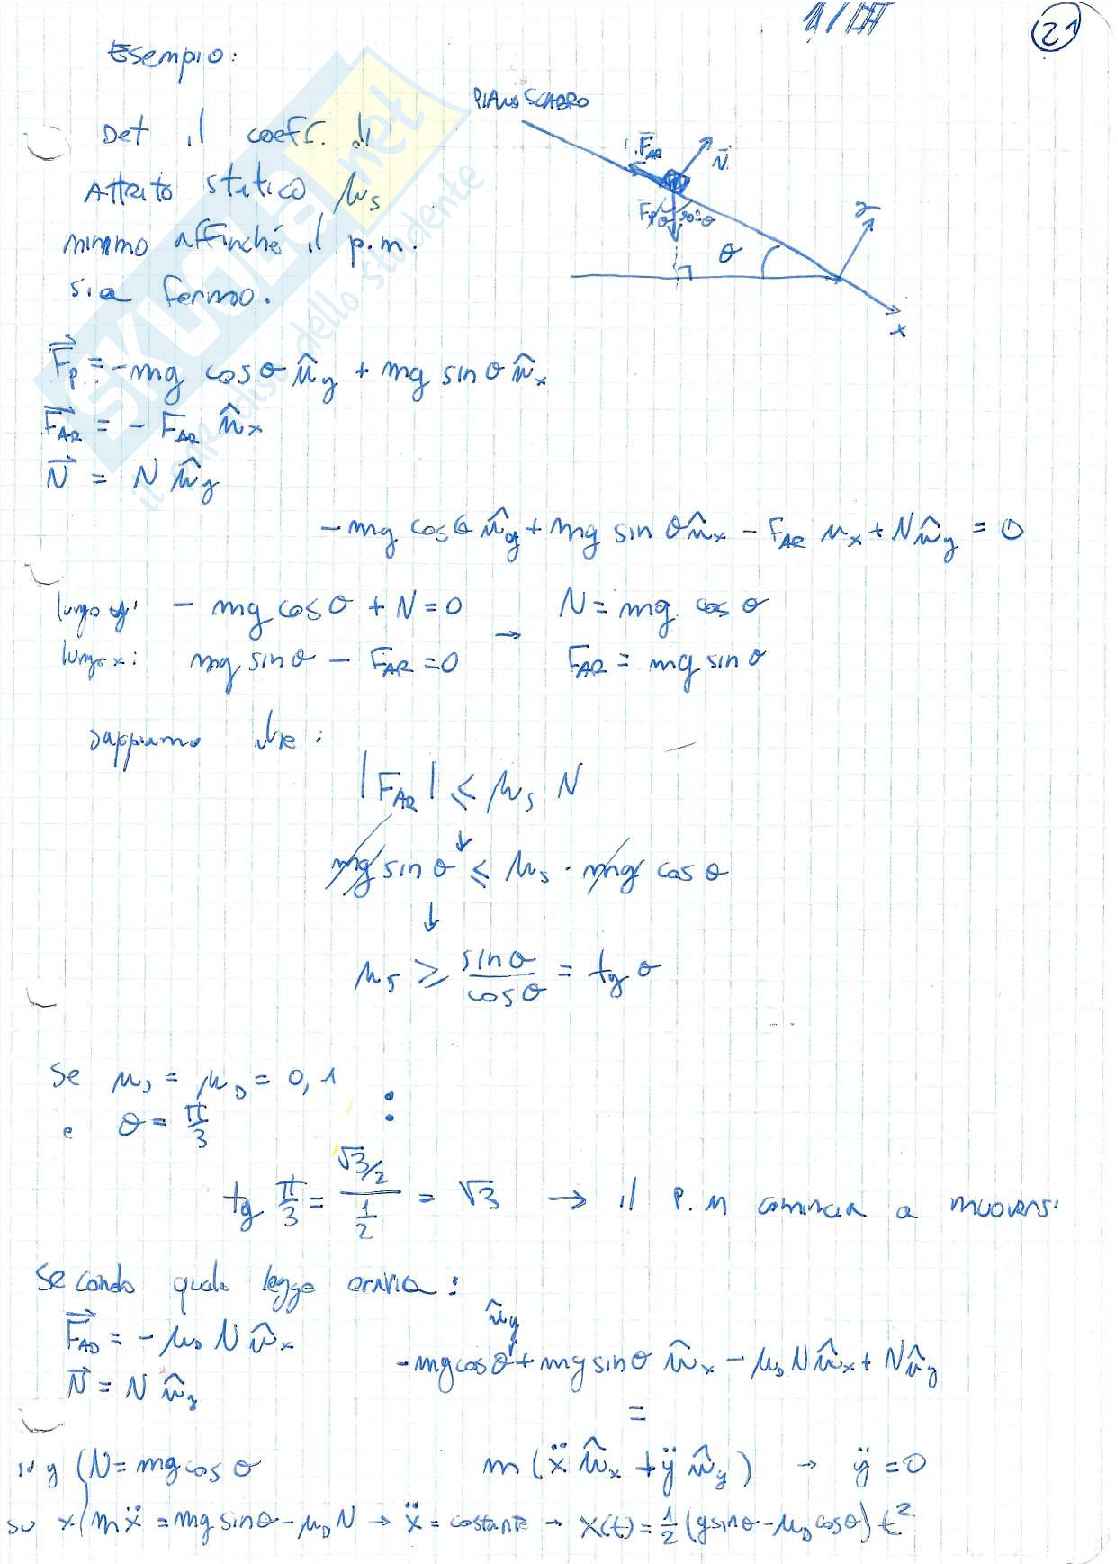 21
Esempio:
PIANO SCABRO
Det il coeff. di
Attrito statico μs
minimo affinché il p.m.
sia fermo.
F_AR
N
F_P
θ
90-θ
θ
y
x
F⃗_P = -mg cosθ û_y + mg sinθ û_x
F⃗_AR = - F_AR û_x
N⃗ = N û_y
-mg cosθ û_y + mg sinθ û_x - F_AR u_x + N û_y = 0
lungo y: - mg cosθ + N = 0 N = mg cosθ
→
lungo x: mg sinθ - F_AR = 0 F_AR = mg sinθ
sappiamo che:
|F_AR| ≤ μs N
↓
mg sinθ ≤ μs · mg cosθ
↓
μs ≥ sinθ/cosθ = tg θ
Se μs = μD = 0,1
e θ = π/3 :
tg π/3 = (√3/2)/(1/2) = √3 → il P.M comincia a muoversi
Secondo quale legge oraria:
F⃗_AD = - μD N û_x
N⃗ = N û_y
-mg cosθ û_y + mg sinθ û_x - μD N û_x + N û_y
=
m(ẍ û_x + ÿ û_y) → ÿ = 0
su y { N = mg cosθ
su x { mẍ = mg sinθ - μD N → ẍ = costante → x(t) = 1/2 (g sinθ - μD cosθ) t²
SKUOLA.net
il paradiso dello studente